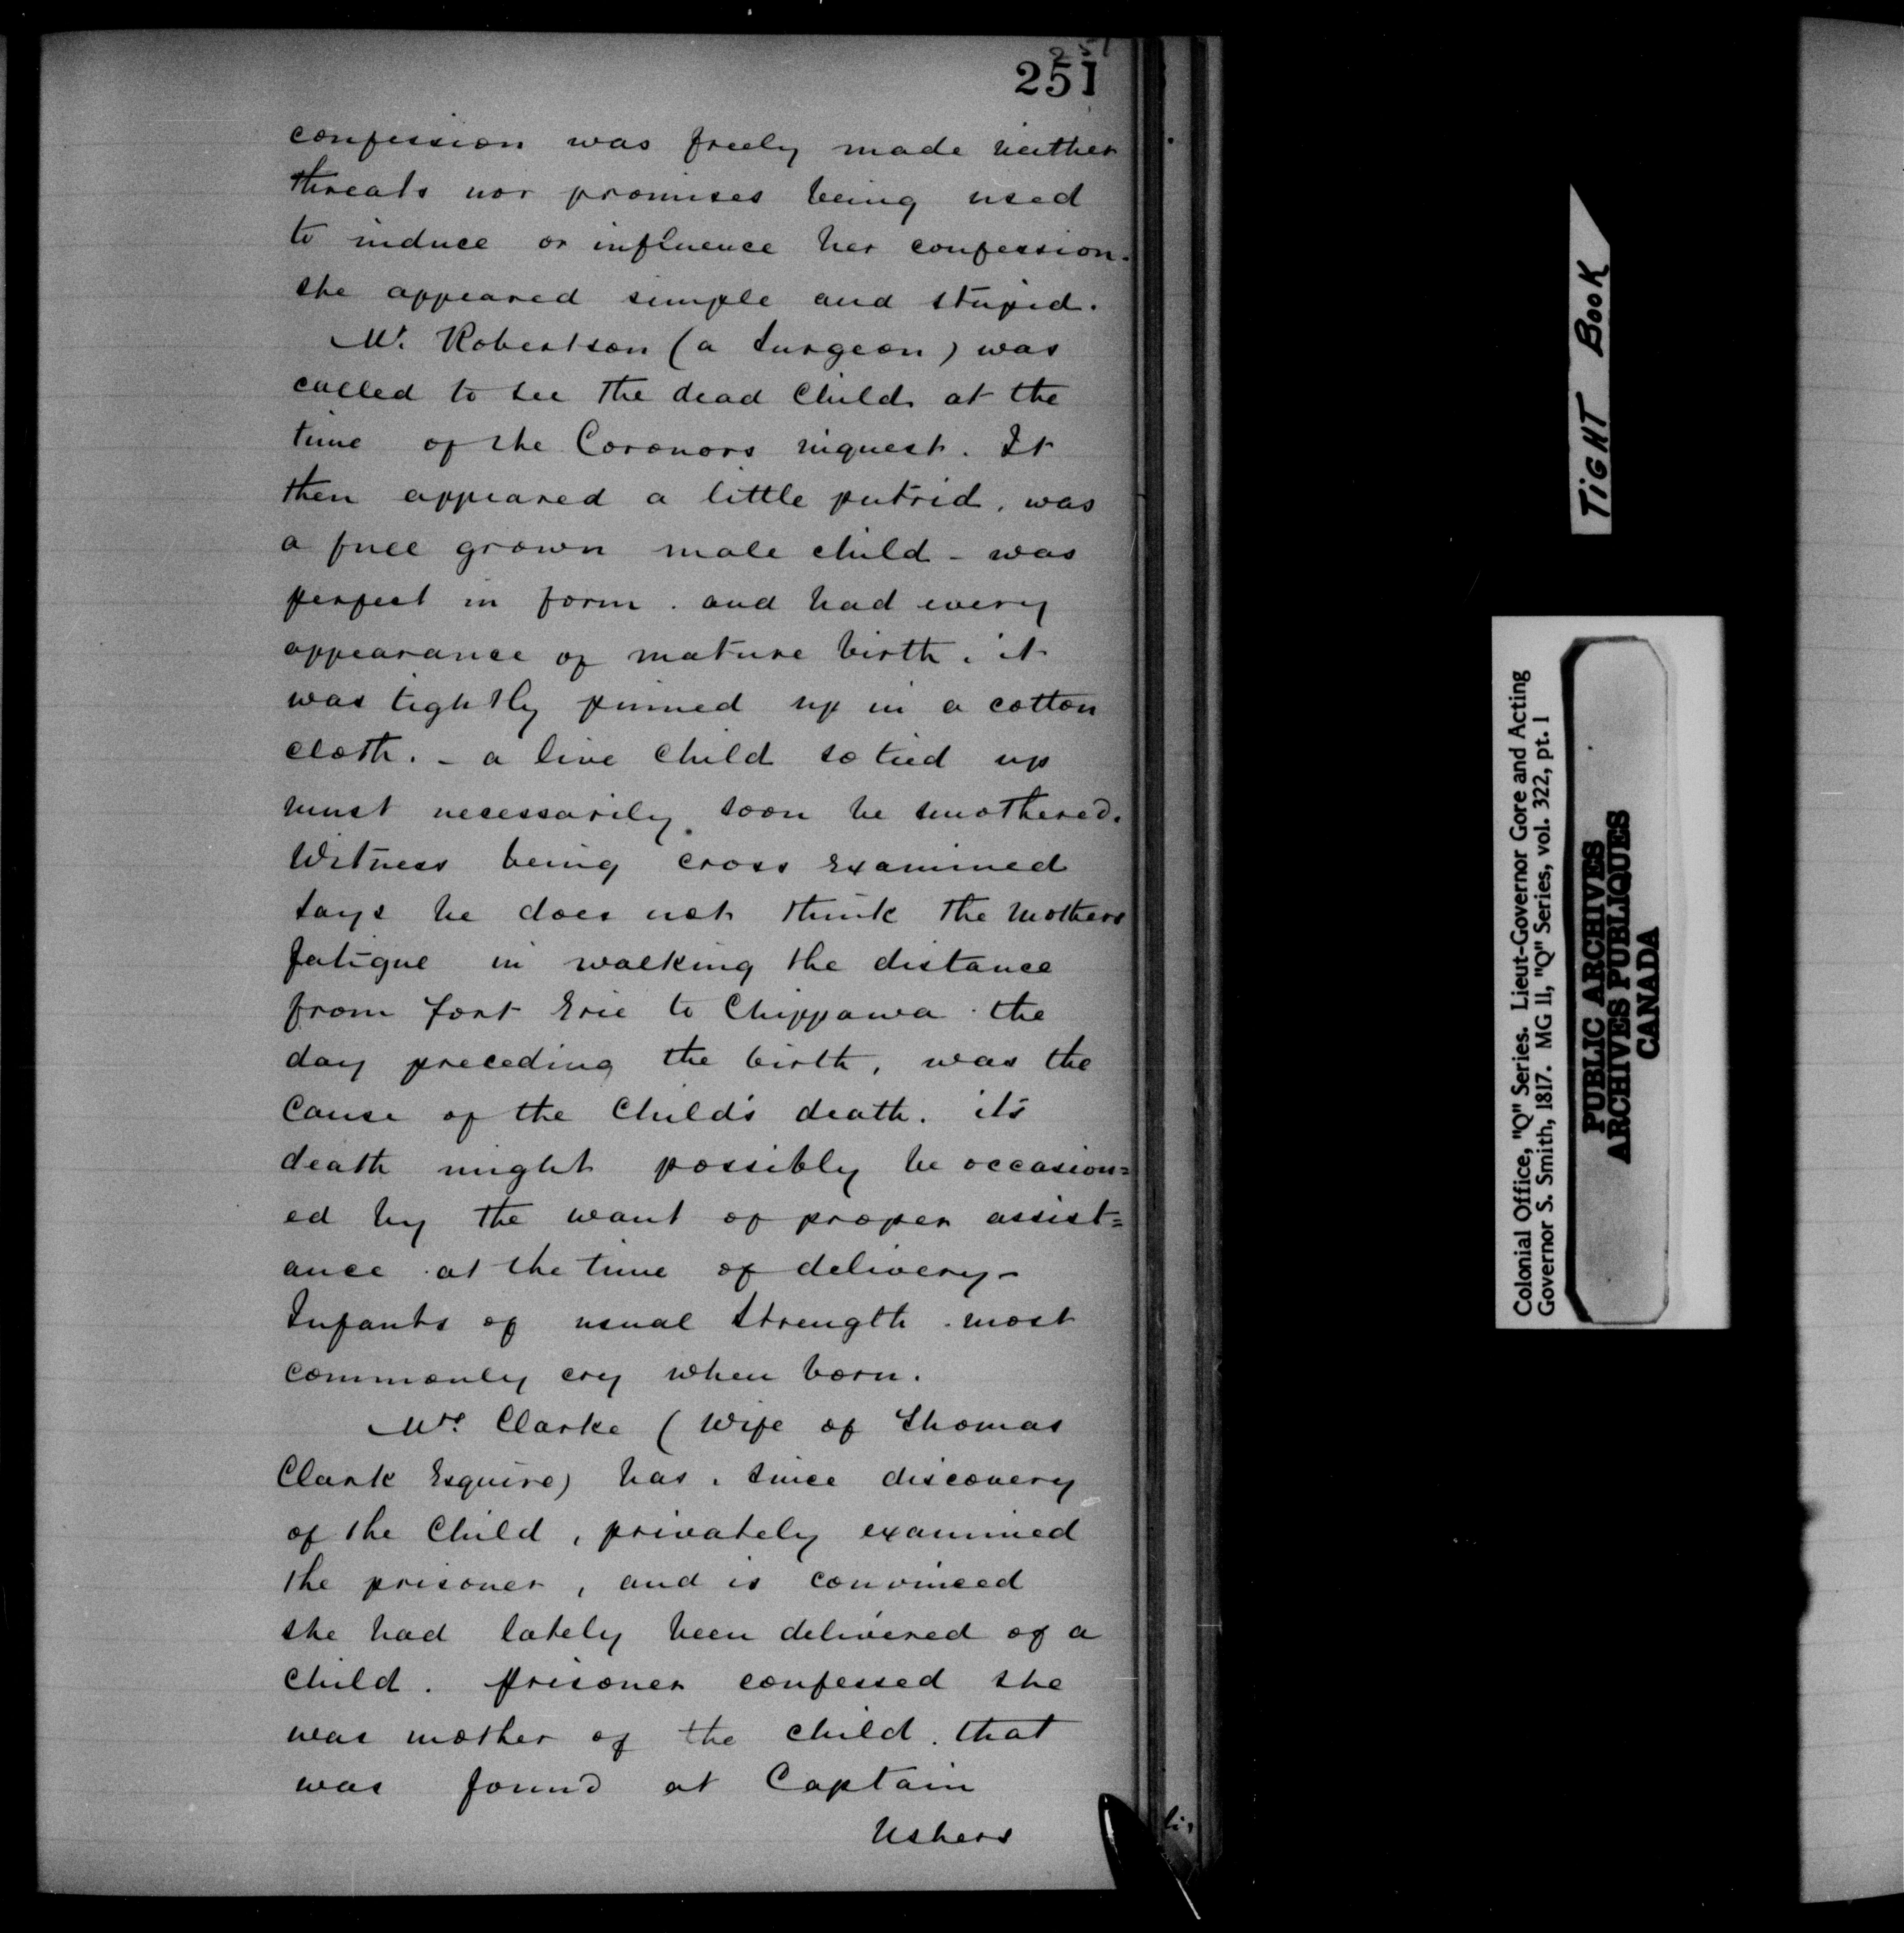 251
251
confession was freely made neither
threats nor promises being used
to induce or influence her confession.
she appeared simple and stupid.
Mr. Robertson (a Surgeon) was
called to see the dead Child at the
time of the Coronors inquest. It
then appeared a little putrid, was
a full grown male child - was
perfect in form. and had every
appearance of mature birth, it
was tightly pinned up in a cotton
cloth. - a live child so tied up
must necessarily soon be smothered.
Witness being cross examined
says he does not think the mothers
fatigue in walking the distance
from fort Erie to Chippawa the
day preceding the birth, was the
Cause of the Child's death. it's
death might possibly be occasion=
ed by the want of proper assist=
ance at the time of delivery -
Infants of usual Strength most
commonly cry when born.
Mrs. Clarke (Wife of Thomas
Clark Esquire) has, since discovery
of the Child, privately examined
the prisoner, and is convinced
she had lately been delivered of a
Child. prisoner confessed she
was mother of the child. that
was found at Captain
Ushers
TIGHT BOOK
Colonial Office, "Q" Series. Lieut-Governor Gore and Acting
Governor S. Smith, 1817. MG 11, "Q" Series, vol. 322, pt. 1
PUBLIC ARCHIVES
ARCHIVES PUBLIQUES
CANADA